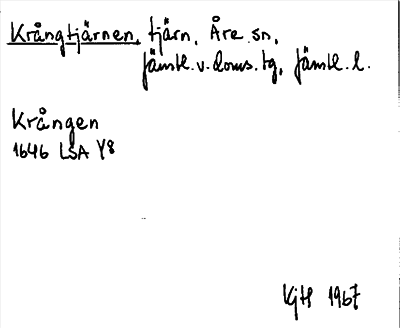 Krångtjärnen, tjärn, Åre sn,
Jämtl. v. doms. tg, Jämtl. l.
Krången
1646 LSA Y8
KjH 1967